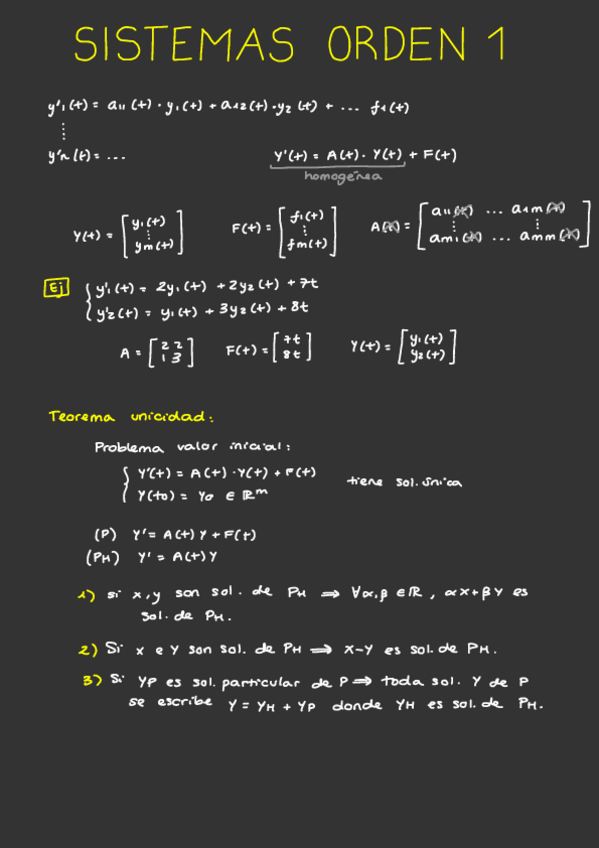 SISTEMAS ORDEN 1
y'₁(t) = a₁₁(t)·y₁(t) + a₁₂(t)·y₂(t) + ... f₁(t)
⋮
y'n(t) = ... Y'(t) = A(t)·Y(t) + F(t)
homogénea
Y(t) = [y₁(t) ⋮ ym(t)] F(t) = [f₁(t) ⋮ fm(t)] A(t) = [a₁₁(t) ... a₁m(t) ⋮ ⋮ am₁(t) ... amm(t)]
Ej { y'₁(t) = 2y₁(t) + 2y₂(t) + 7t
y'₂(t) = y₁(t) + 3y₂(t) + 8t
A = [2 2 1 3] F(t) = [7t 8t] Y(t) = [y₁(t) y₂(t)]
Teorema unicidad:
Problema valor inicial:
{ Y'(t) = A(t)·Y(t) + F(t)
Y(t₀) = Y₀ ∈ ℝᵐ tiene sol. única
(P) Y' = A(t)Y + F(t)
(PH) Y' = A(t)Y
1) si x,y son sol. de PH ⇒ ∀α,β ∈ ℝ, αx+βy es
sol. de PH.
2) Si x e y son sol. de PH ⇒ x-y es sol. de PH.
3) Si YP es sol. particular de P ⇒ toda sol. Y de P
se escribe Y = YH + YP donde YH es sol. de PH.